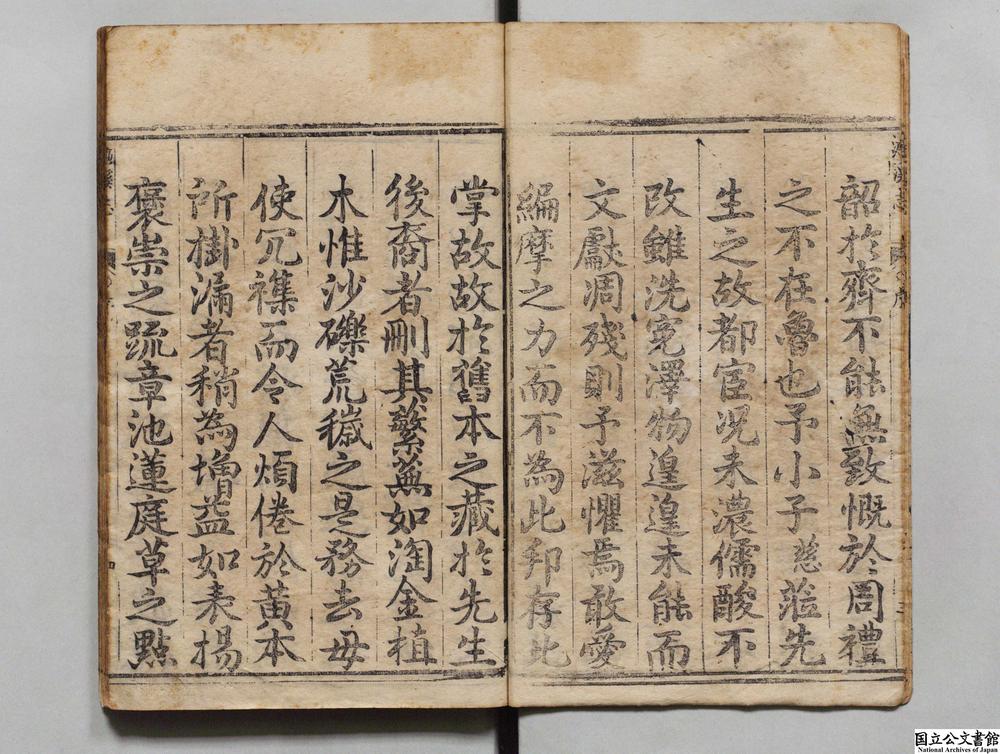 韶於齊不能無致慨於周禮
之不在魯也予小子慈蒞先
生之故都宦況未濃儒酸不
改雖洗冤澤物遑遑未能而
文獻凋殘則予滋懼焉敢愛
編摩之力而不為此邦存此
掌故故於舊本之藏於先生
後裔者刪其繁蕪如淘金植
木惟沙礫荒穢之是務去毋
使冗襍而令人煩倦於黃本
所掛漏者稍為增益如表揚
褒崇之疏章池蓮庭草之點
国立公文書館
National Archives of Japan